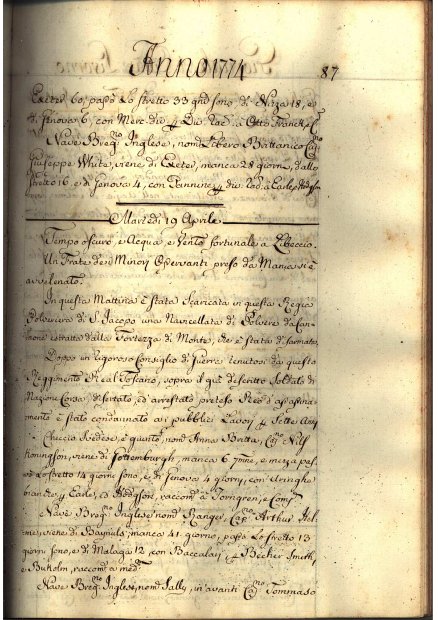 Anno 1774 87
Exeter 60, passò Lo Stretto 33 gni sono, di Nizza 18, e
di Genova 6, con Merc. div. Rac. a Otto Franck, e Cº
Nave Breg.no Inglese, nom. Libero Brattanico Cap.
Giuseppe White, viene di Exeter, manca 28 giorni, dallo
Stretto 16, e di Genova 4, con Pannine div. Rac. a Earle,
Martedi 19 Aprile
Tempo oscuro, e Acqua, e Vento fortunale a Libeccio.
Un Frate de Minori Osservanti preso da Mania si è
avvelenato.
In questa Mattina è stata Scaricata in questa Regia
Polveriera di S. Jacopo una Navicellata di Polvere da Can-
none estratta dalla Fortezza di Monte, che è stata di
Dopo un rigoroso Consiglio di Guerra tenutosi da questo
Reggimento Real Toscano, sopra il già descritto Soldato di
Nazione Corsa, disertato, ed arrestato preteso Reo d'assassina-
mento è stato condannato ai pubblici Lavori Sette Anni
Checcia Svedese, è giunto, nom. Anna Britta, Cap. Nils
viene di Gottemburgh, manca 6 7mne, e mezza pas-
sò Lo Stretto 14 giorni sono, e di Genova 4 giorni, con Aringhe
bianche, Earle, ed Hodgson, raccom. a Torngren, e Comp.
Nave Breg.no Inglese nom. Ranger, Cap. Arthur Hel-
me, viene di manca 41 giorno, passò Lo Stretto 13
giorni sono, e di Malaga 12 con Baccalari Becher Smith,
e raccom. a med.
Nave Breg.no Inglese, nom. Sally, in avanti Cap. Tommaso